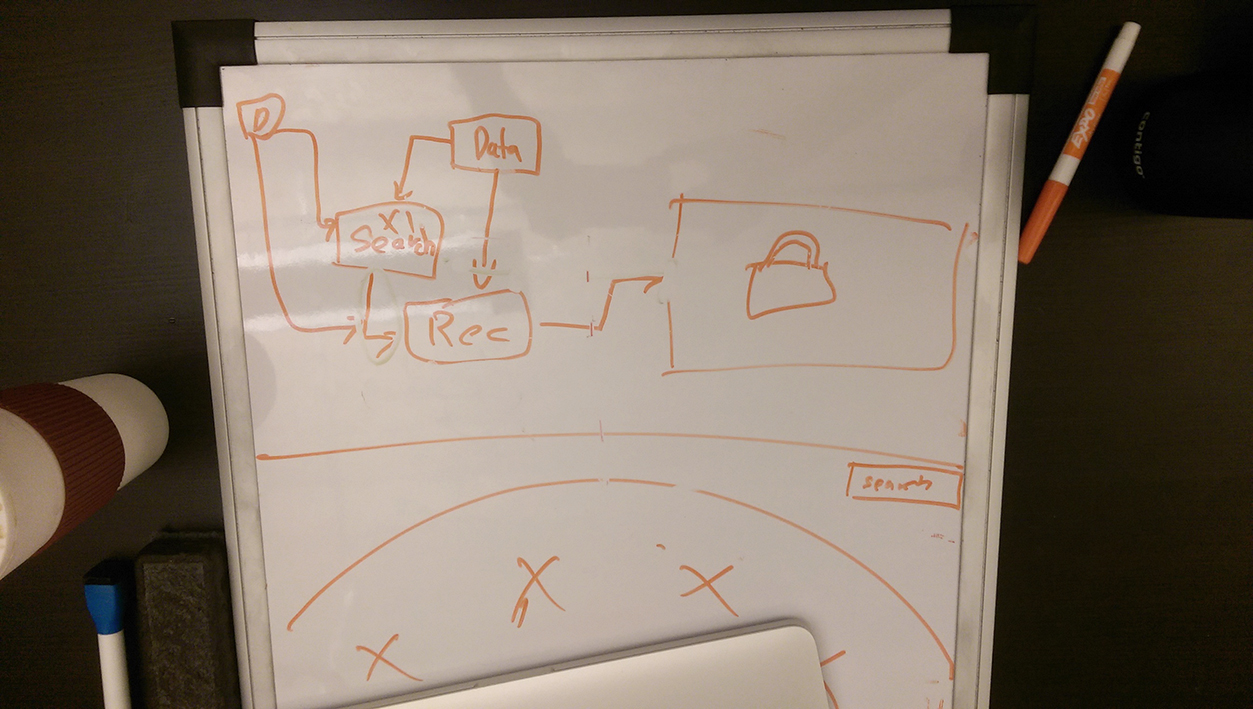 D
Data
X1
Search
Rec
search
X
X
X
EXPO
contigo